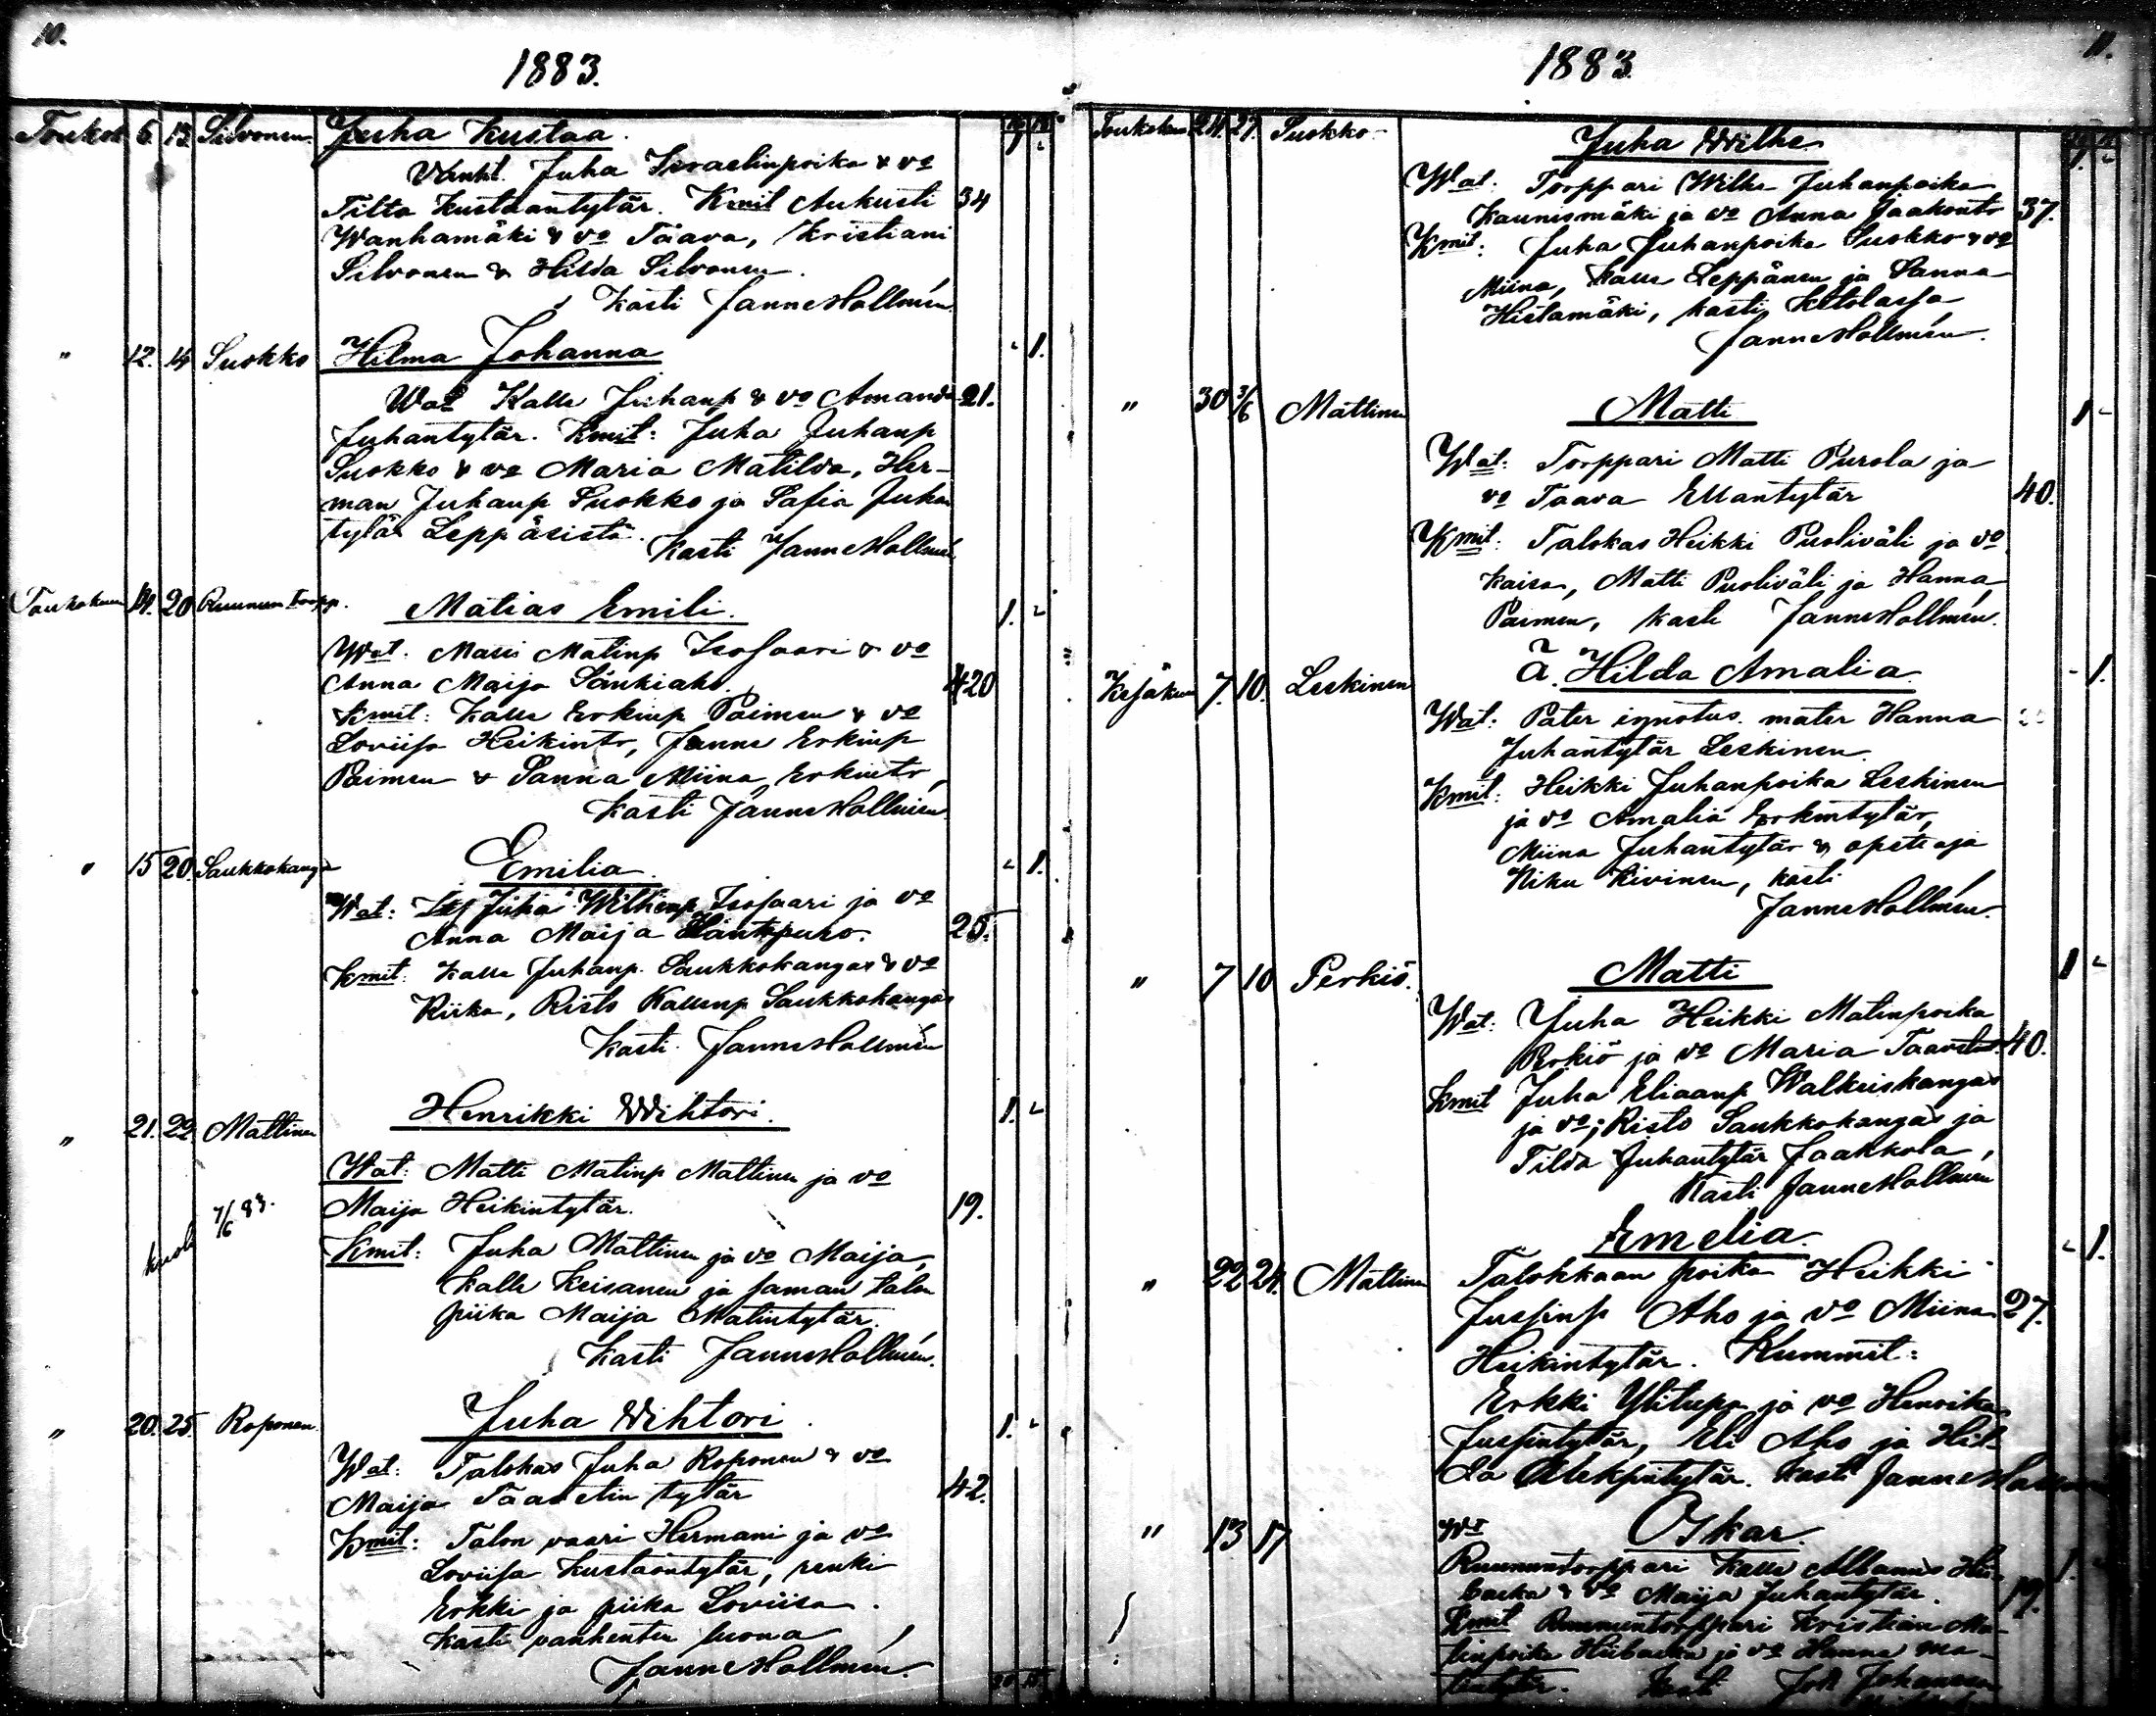 10.
1883.
Toukok 6. 13. Silvonen. Juha Kustaa.
Vanht. Juha Israelinpoika & vo
Tilta Kustaantytär. Kmit Aukusti 34
Wanhamäki & vo Taava, Kristiani
Silvonen & Hilda Silvonen.
Kasti Janne Hallmén.
" 12. 14 Suokko Hilma Johanna - 1.
Wat Kalle Juhanp & vo Amanda 21.
Juhantytär. Kmit: Juha Juhanp
Suokko & vo Maria Matilda, Her-
man Juhanp Suokko ja Safia Juhan
tytär Leppäsistä.
Kasti Janne Hallmén
Toukokuu 14. 20 Ruunun torpp. Matias Emili. 1. -
Wat. Matti Matinp Isosaari & vo
Anna Maija Sänkiaho. 420
Kmit: Kalle Erkinp Paimen & vo
Loviisa Heikintr, Janne Erkinp
Paimen & Sanna Miina Erkintr,
Kasti Janne Hallmén.
" 15 20. Saukkokangas Emilia. - 1.
Wat: Juha Willemp Isosaari ja vo
Anna Maija 25.
Kmit: Kalle Juhanp. Saukkokangas & vo
Riika, Risto Kallenp Saukkokangas
Kasti. Janne Hallmén
" 21. 22 Mattinen Henrikki Wihtori. 1. -
Wat: Matti Matinp Mattinen ja vo
Maija Heikintytär. 19.
kuoli 7/6 83.
Kmit: Juha Mattinen ja vo Maija,
Kalle Keisanen ja saman talon
piika Maija Matintytär.
Kasti Janne Hallmén.
" 20. 25 Roponen Juha Wihtori. 1. -
Wat: Talokas Juha Roponen & vo
Maija Taavetin tytär 42.
Kmit: Talon vaari Hermani ja vo
Loviisa Kustaantytär, renki
Erkki ja piika Loviisa.
Kasti vanhenten luona
Janne Hallmén.
11.
1883.
Toukokuu 24. 27. Suokko Juha Wilhe
Wat: Torppari Wilhe Juhanpoika
Kaunismäki ja vo Anna Jaakontr 37.
Kmit: Juha Juhanpoika Suokko & vo
Miina, Kalle Leppänen ja Sanna
Hietamäki, kasti Ketolassa
Janne Hallmén.
" 30 3/6 Mattinen Matti 1 -
Wat: Torppari Matti Purola ja
vo Taava Ellantytär 40.
Kmit: Talokas Heikki Puoliväli ja vo
Kaisa, Matti Puoliväli ja Hanna
Paimen, kasti Janne Hallmén.
Kesäkuu 7. 10. Leskinen Ä. Hilda Amalia - 1.
Wat: Pater ignotus. mater Hanna
Juhantytär Leskinen.
Kmit: Heikki Juhanpoika Leskinen
ja vo Amalia Erkintytär,
Miina Juhantytär & opettaja
Niku Kivinen, kasti
Janne Hallmén.
" 7 10 Perkiö. Matti 1 -
Wat: Juha Heikki Matinpoika
Perkiö ja vo Maria 40.
Kmit Juha Eliaanp Walkeiskangas
ja vo; Risto Saukkokangas ja
Tilda Juhantytär Jaakkola,
Kasti Janne Hallmén
Emelia. - 1.
" 22 24. Mattinen Talokkaan poika Heikki
Jussinp Aho ja vo Miina 27.
Heikintytär. Kummit:
Erkki Ylitupa ja vo Henrika
Jussintytär, Eli Aho ja Hil-
da Kasti Janne Hallmén
" 13 17 Wt Oskar. 1. -
Ruununtorppari Kalle
& vo Maija Juhantytär. 19.
Kmit Ruununtorppari Kristian Ma-
tinpoika ja vo Hanna Ma-
tintytär. Kasti Joh Johansson